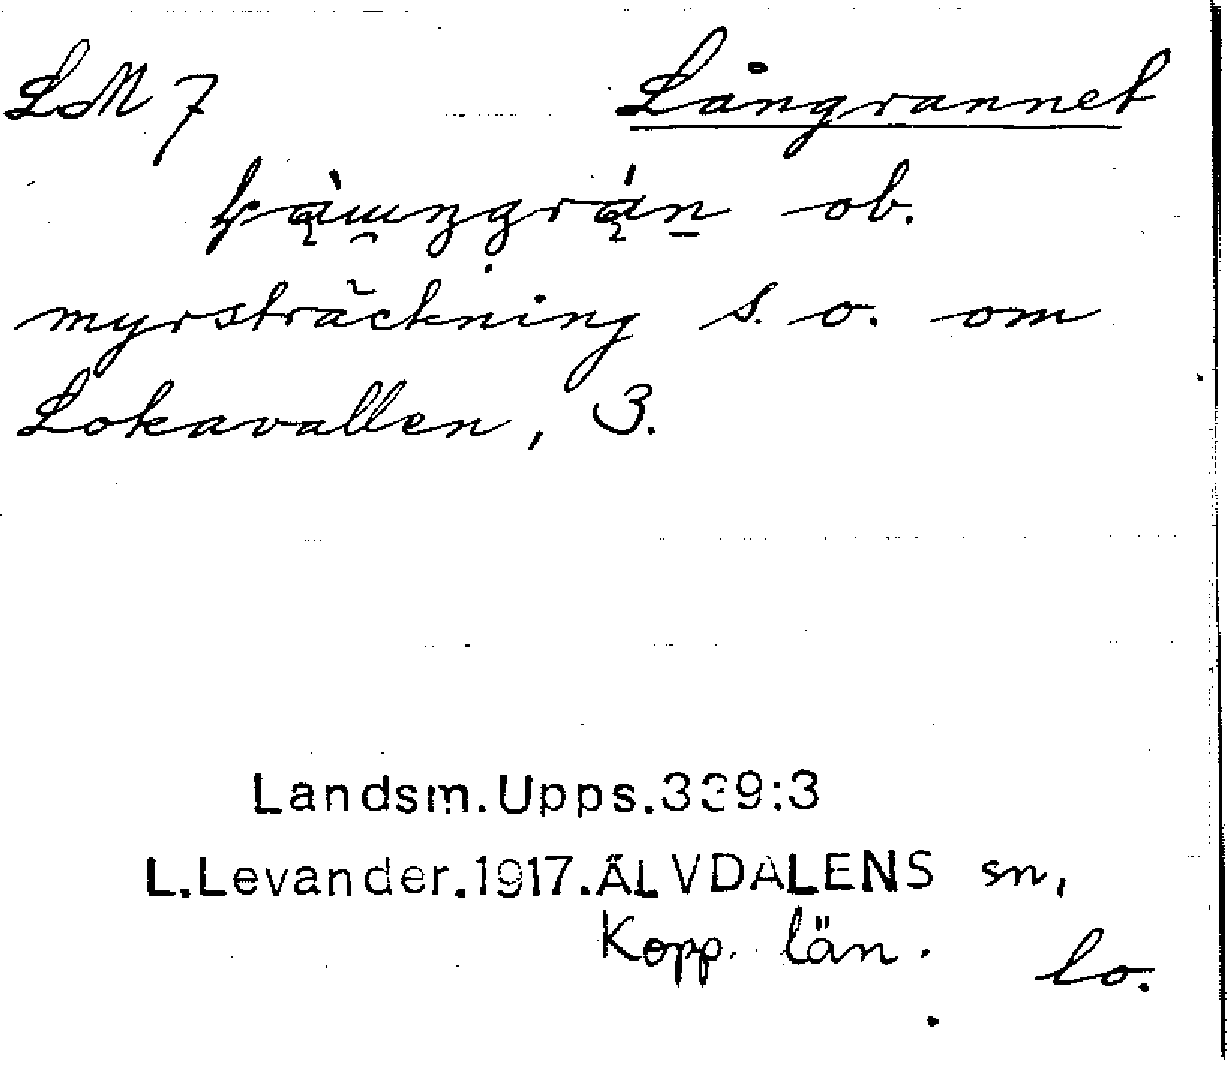 LM 7 Långrannet
ob.
myrsträckning s. o. om
Lokavallen, 3.
Landsm.Upps.339:3
L.Levander.1917.ÄLVDALENS sn,
Kopp. län.
lo.